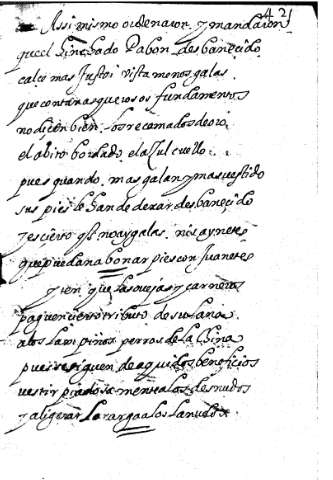 421
Assi mismo ordenaron, y mandaron
que el hinchado Pabon, desbanecido
calce mas justo: vista menos galas.
que con tan asquerosos fundamentos
no dicen bien, los recamados de oro,
el abito bordado, el açul cuello.
pues quando, mas galan y mas vestido
sus pies le han de dexar, desbanecido
y es cierto q no ay galas, ni ay nete
que puedan abonar pies con Juanetes
yten que las ovejas y carneros
paguen cierto tributo de su lana
a los lampiños perros de la China
pues se siguen de aqui dos beneficios
vestir piadosamente a los desnudos
y aligerar la carga a los lanudos.